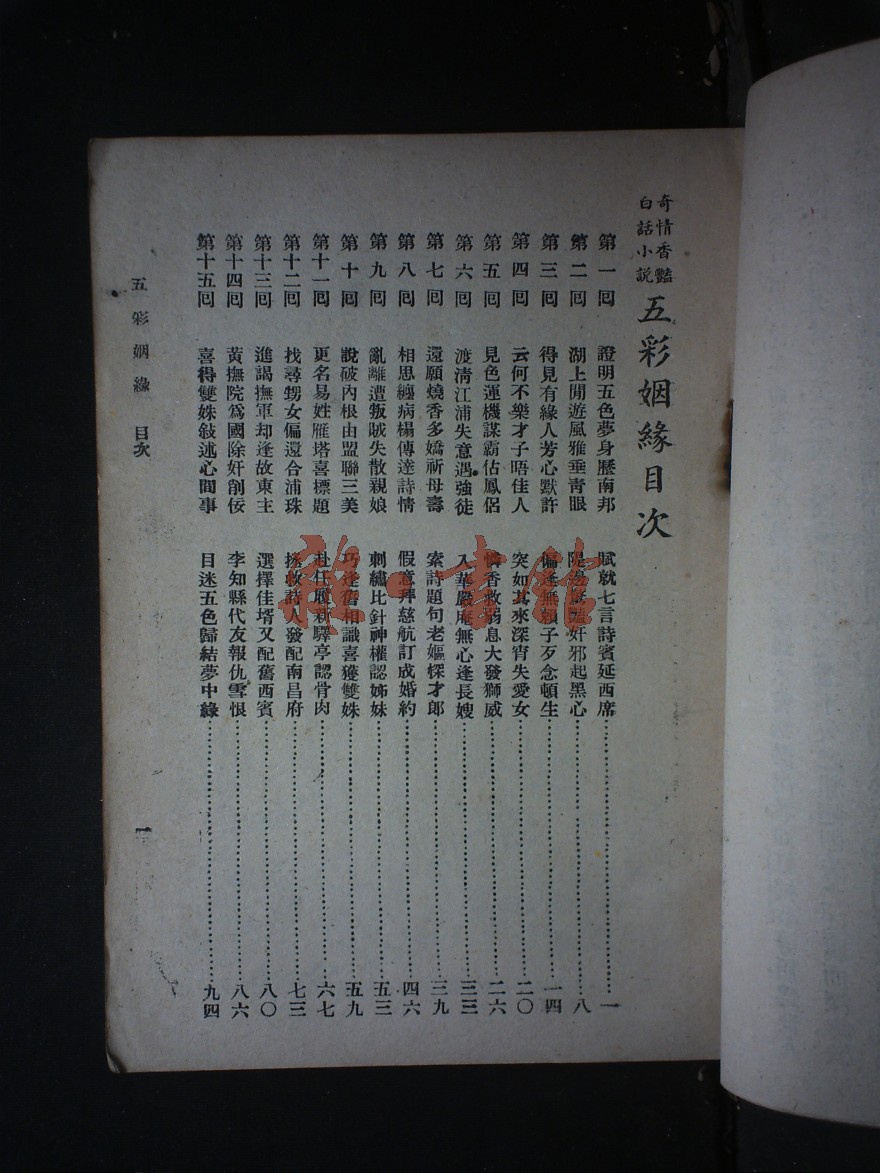 奇情香豔
白話小說
五彩姻緣目次
第一回 證明五色夢身歷南邦 賦就七言詩賓延西席 一
第二回 湖上閒遊風雅垂青眼 奸邪起黑心 八
第三回 得見有緣人芳心默許 偏逢無賴子歹念頓生 一四
第四回 云何不樂才子晤佳人 突如其來深宵失愛女 二〇
第五回 見色運機謀霸佔鳳侶 憐香救弱息大發獅威 二六
第六回 渡清江浦失意遇強徒 入華嚴庵無心逢長嫂 三三
第七回 還願燒香多嬌祈母壽 索詩題句老嫗探才郎 三九
第八回 相思纏病楊傳達詩情 假意拜慈航訂成婚約 四六
第九回 亂離遭叛賊失散親娘 刺繡比針神權認姊妹 五三
第十回 說破內根由盟聯三美 巧逢舊相識喜獲雙姝 五九
第十一回 更名易姓雁塔喜標題 赴任履新驛亭認骨肉 六七
第十二回 找尋甥女偏還合浦珠 拯救詩人發配南昌府 七三
第十三回 進謁撫軍却逢故東主 選擇佳壻又配舊西賓 八〇
第十四回 黃撫院爲國除奸削佞 李知縣代友報仇雪恨 八六
第十五回 喜得雙姝敍述心間事 目迷五色歸結夢中緣 九四
五彩姻緣 目次
一